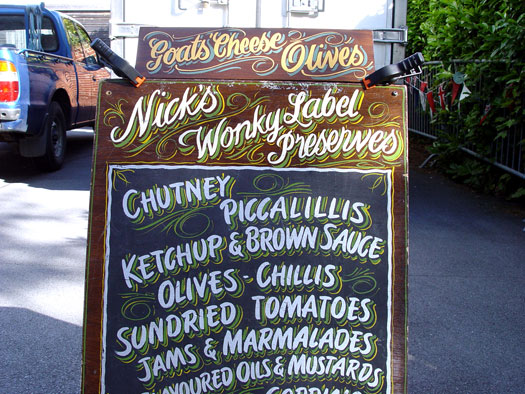 Goats Cheese Olives
Nick's
Wonky Label
Preserves
CHUTNEY
PICCALILLIS
KETCHUP & BROWN SAUCE
OLIVES - CHILLIS
SUNDRIED TOMATOES
JAMS & MARMALADES
FLAVOURED OILS & MUSTARDS